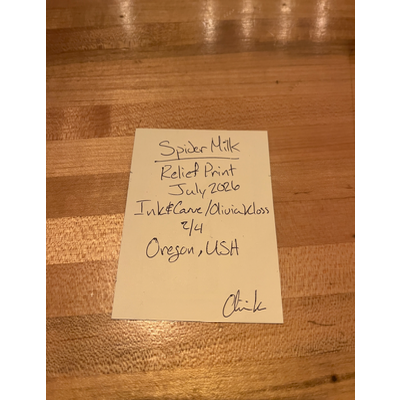 Spider Milk
Relief Print
July 2026
Ink&Carve/Olivia Kloss
2/4
Oregon, USA